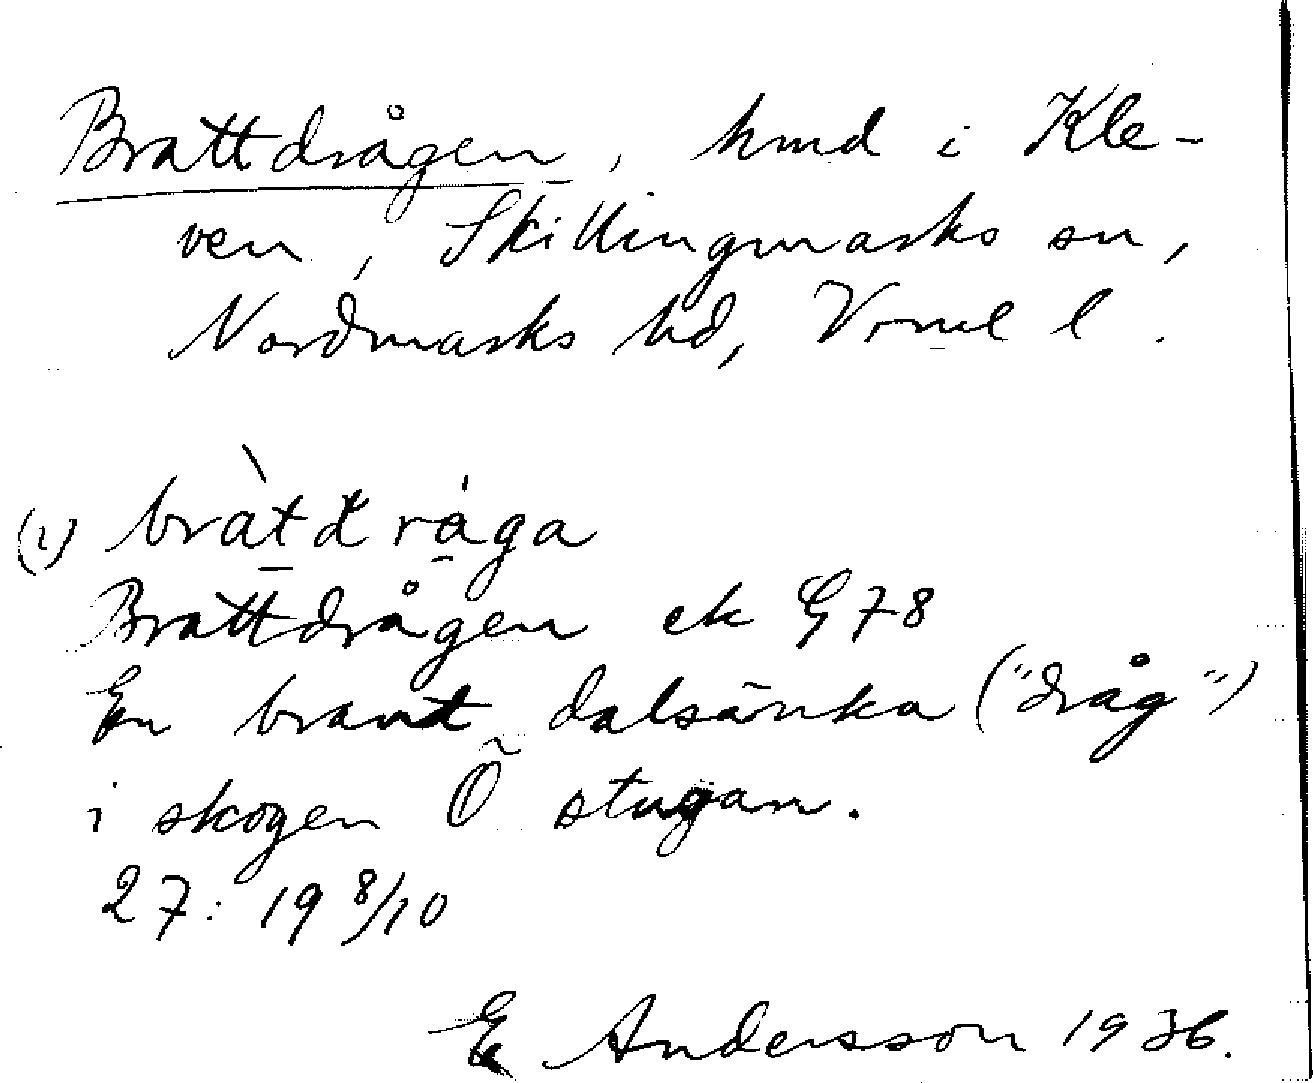 Brattdrågen, hmd i Kle-
ven, Skillingmarks sn,
Nordmarks hd, Vrml l.
(i) bràtdråga
Brattdrågen ek G78
En brant dalsänka ("dråg")
i skogen Ö stugan.
27: 19 8/10
E Andersson 1936.